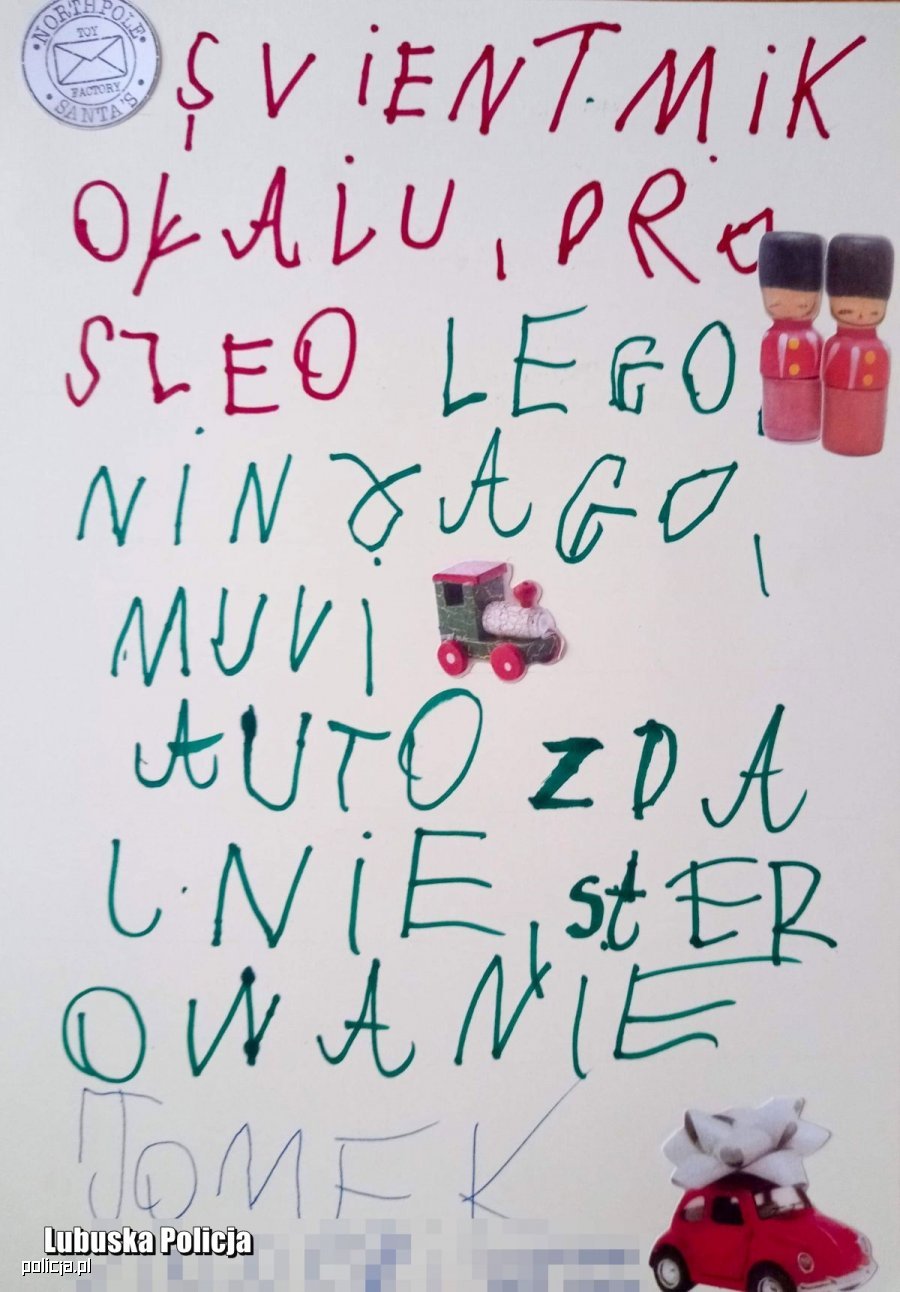 NORTH POLE
TOY
FACTORY
SANTA'S
ŞVIENT MIK
OŁAIU, PRO
SZEO LEGO,
NINYAGO,
MUVI
AUTO ZDA
LNIE, stER
OWANIE
TOMEK
Lubuska Policja
policja.pl